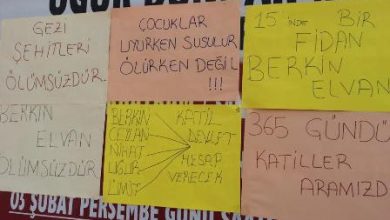 GEZİ
ŞEHİTLERİ
ÖLÜMSÜZDÜR
ÇOCUKLAR
UYURKEN SUSULUR
ÖLÜRKEN DEĞİL
!!!
15 'inDE BİR
FİDAN
BERKİN
ELVAN
BERKİN
ELVAN
ÖLÜMSÜZDÜR
BERKİN
CEYLAN
NİHAT
UĞUR
ÜMİT
KATİL
DEVLET
HESAP
VERECEK
365 GÜNDÜ
KATİLLER
ARAMIZD
03 ŞUBAT PERŞEMBE GÜNÜ